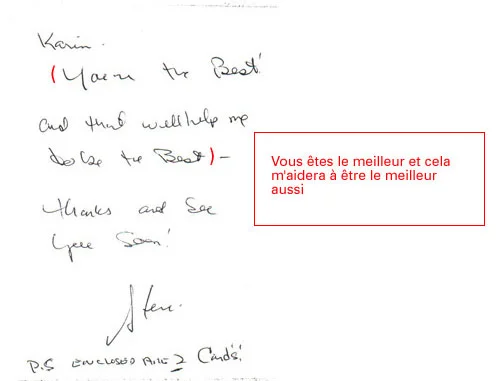 Karin.
(You're the Best!
and that will help me
to be the Best) –
Vous êtes le meilleur et cela
m'aidera à être le meilleur
aussi
thanks and See
you Soon!
P.S ENCLOSED ARE 2 Cards!